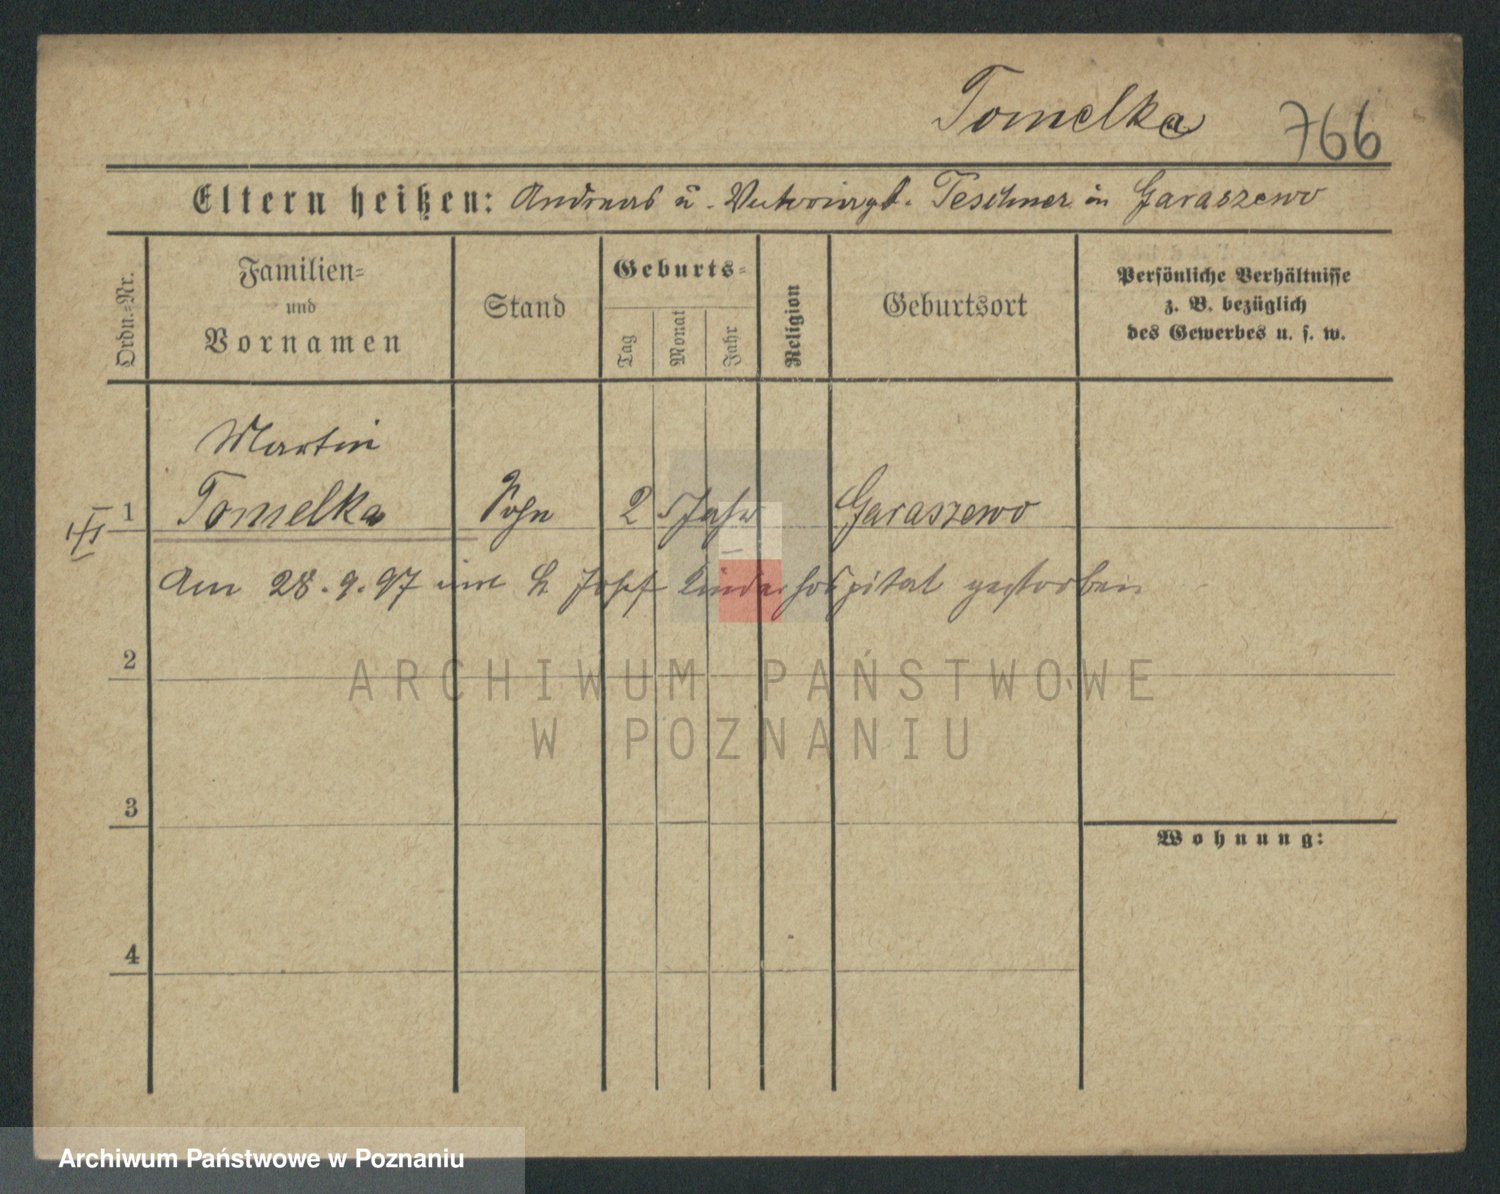 Tomelka 766
Eltern heißen: Andreas u. Victoria geb. Teschner in Garaszewo
Ordn.-Nr.
Familien-
und
Vornamen
Stand
Geburts-
Tag
Monat
Jahr
Religion
Geburtsort
Persönliche Verhältnisse
z. B. bezüglich
des Gewerbes u. s. w.
Martin
1 Tomelka Sohn 2 Jahr Garaszewo
Am 28.9.97 im St Josef Kinderhospital gestorben
2
ARCHIWUM PAŃSTWOWE
W POZNANIU
3
Wohnung:
4
Archiwum Państwowe w Poznaniu